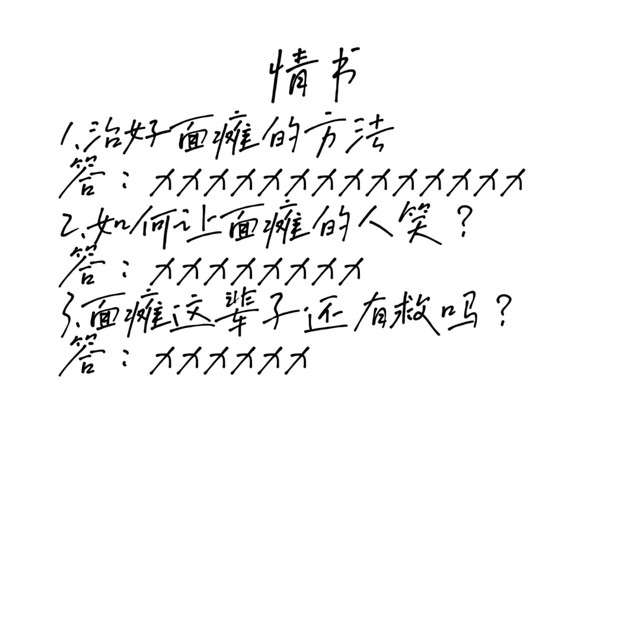 情书
1.治好面瘫的方法
答：xxxxxxxxxxxxxx
2.如何让面瘫的人笑？
答：xxxxxxxx
3.面瘫这辈子还有救吗？
答：xxxxxx